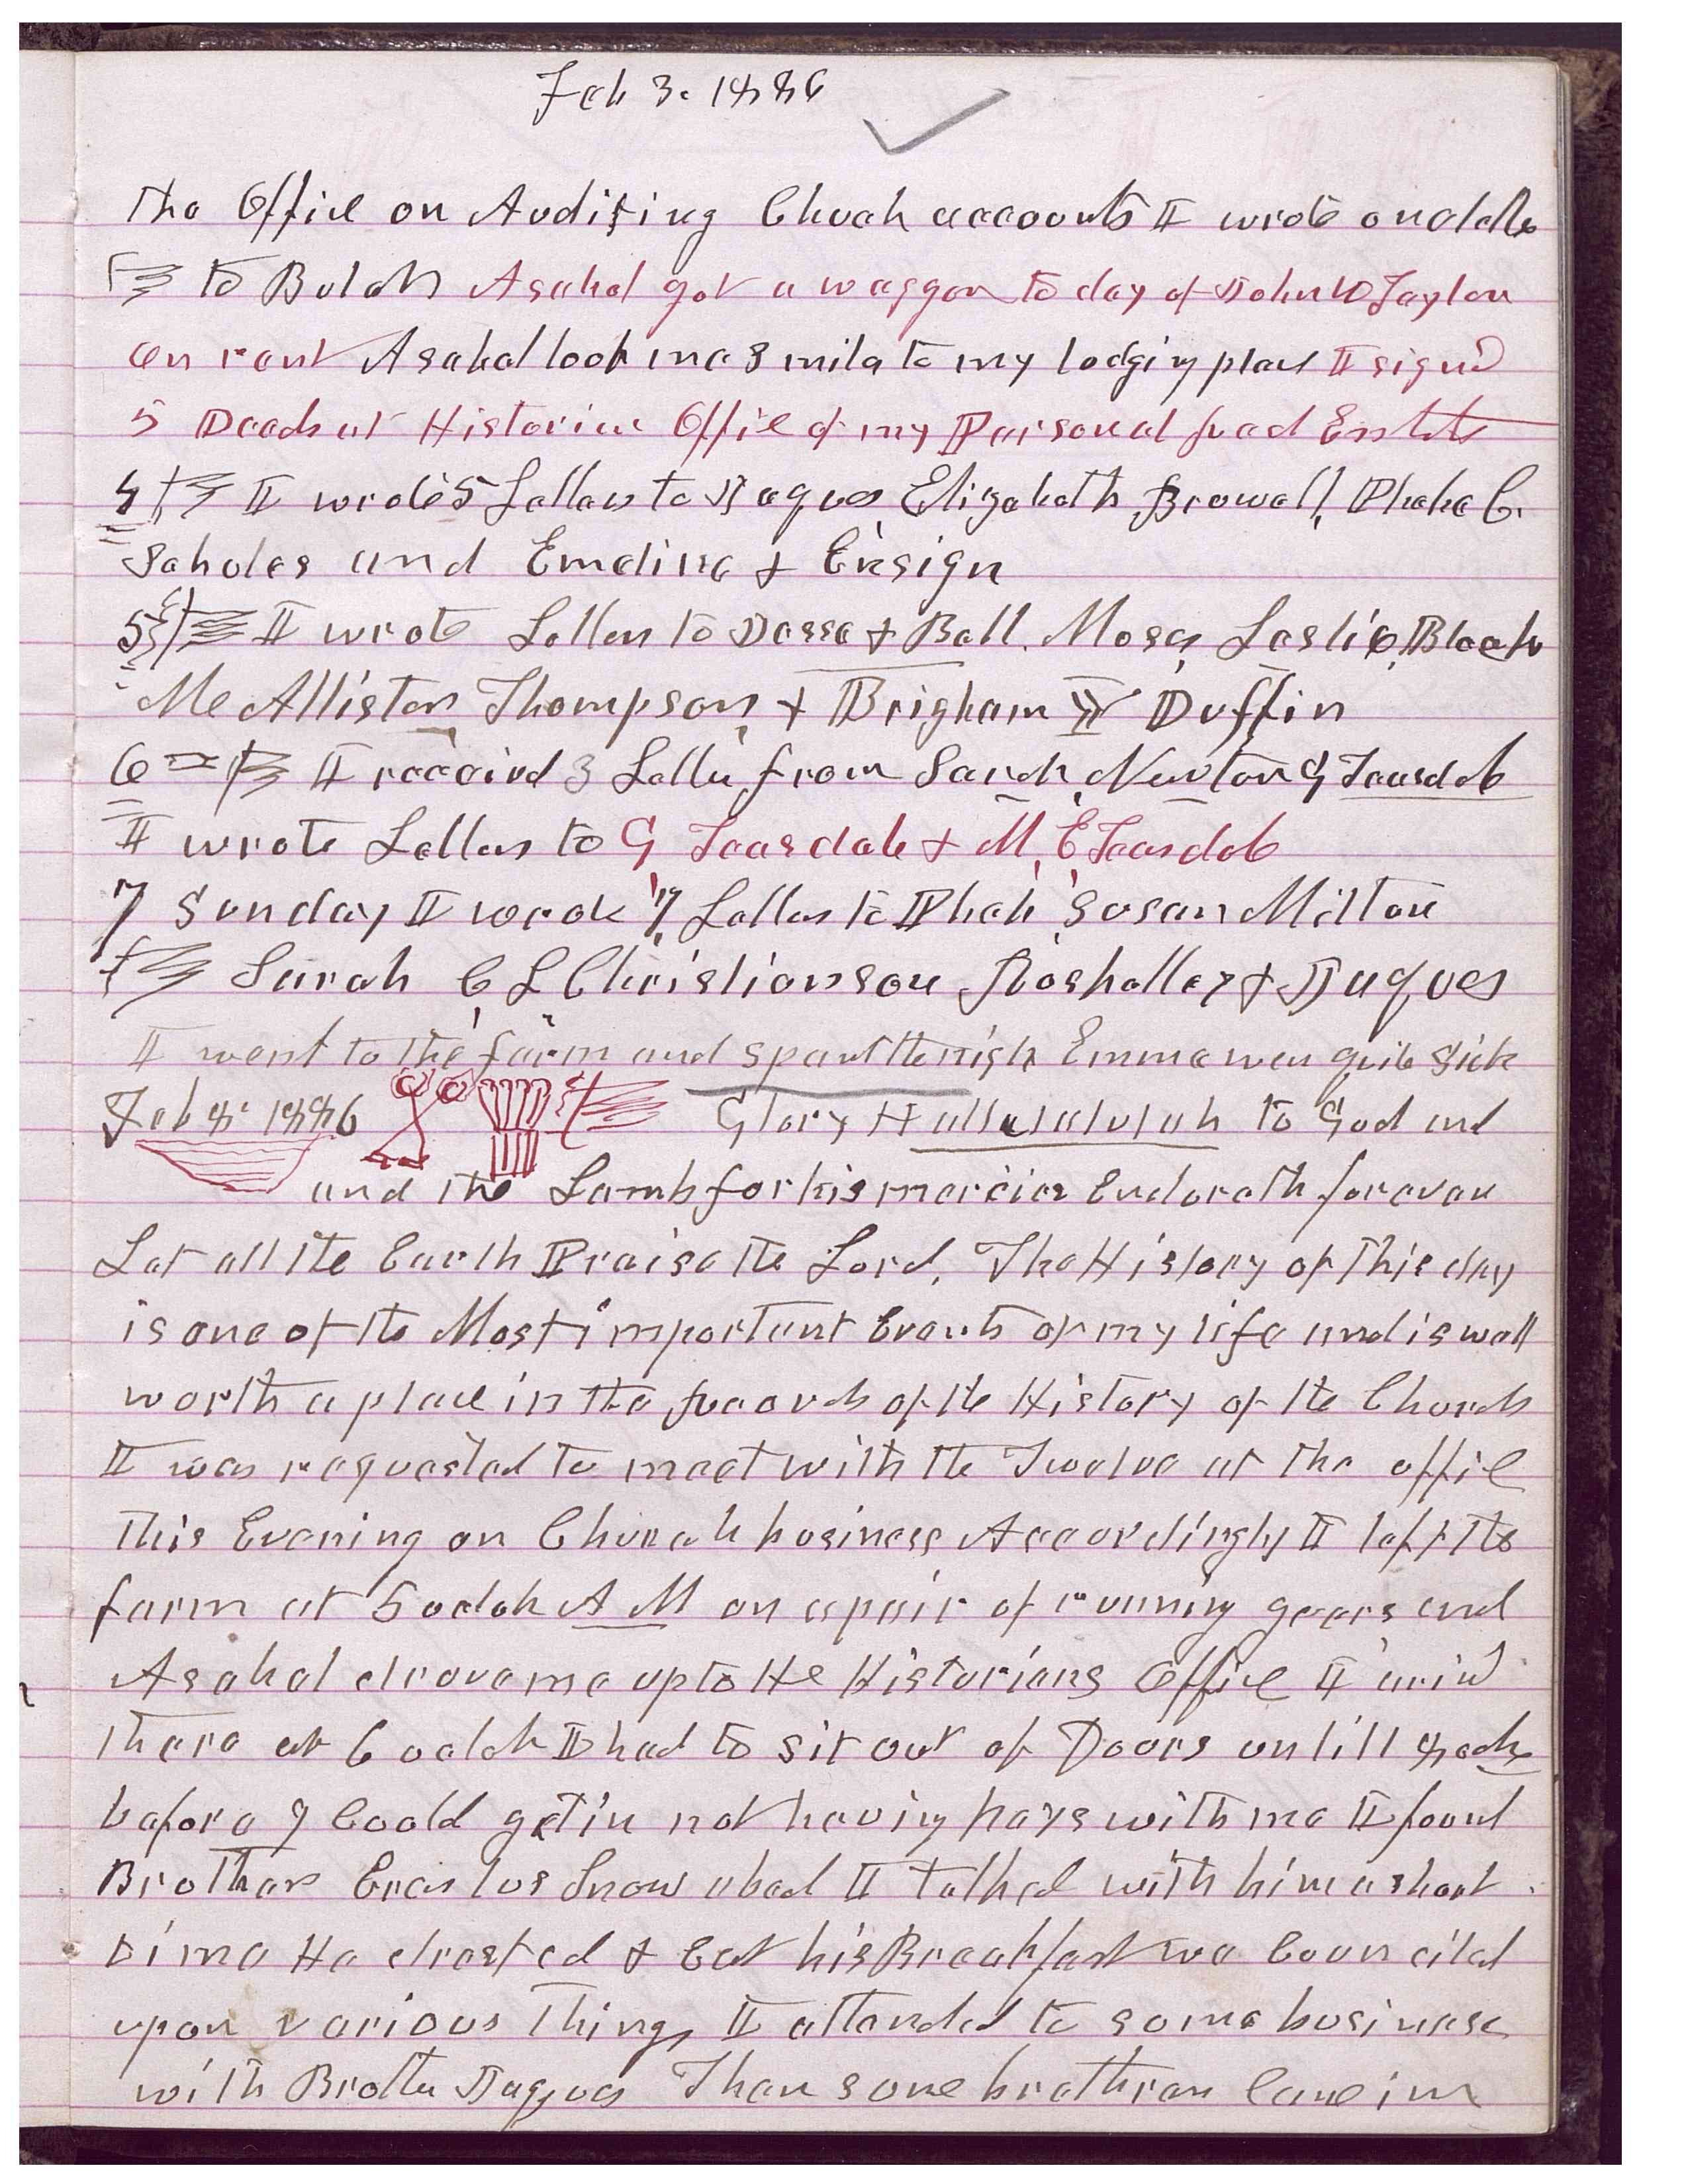 Feb 3. 1886
the Office on Auditing Chuch accounts I wrote one letter
to Bulah Asahel got a waggon to day of John W Taylor
on rent Asahel took me 3 mile to my lodging place I signed
5 Deeds at Historian Office of my Personal Real Estate
4 I wrote 5 Letters to Jaques Elizabeth Browell, Phebe C.
Scholes and Emeline & Ensign
5 I wrote Letters to Jesse & Bell. Moses, Leslie, Bleak
McAllister, Thompson, & Brigham Y Duffin
6 I received 3 Letters from Sarah, Newton G Teasdale
I wrote Letters to G Teasdale & M, E Teasdale
7 Sunday I wrote 7 Letters to Pheb Susan Milton
Sarah C L Christianson Roskelley & Jaques
I went to the farm and spent the night Emma was quite sick
Feb 8 1886 Glory Hallulalulah to God and
and the Lamb for his mercies Endureth forever
Let all the Earth Praise the Lord, The History of this day
is one of the Most important Events of my life and is well
worth a place in the Records of the History of the Church
I was requested to meet with the Twelve at the office
This Evening on Church business Accordingly I left the
farm at 5 oclok A M on a pair of running gears and
Asahel drove me up to the Historians Office I arived
there at 6 oclok I had to sit out of Doors untill 8 ock
before I Could get in not having keys with me I found
Brother Erastus Snow abed I talked with him a short
time He dressed & Eat his Breakfast we Counciled
upon various things I attended to some business
with Brother Jaques Then some brethren Came in